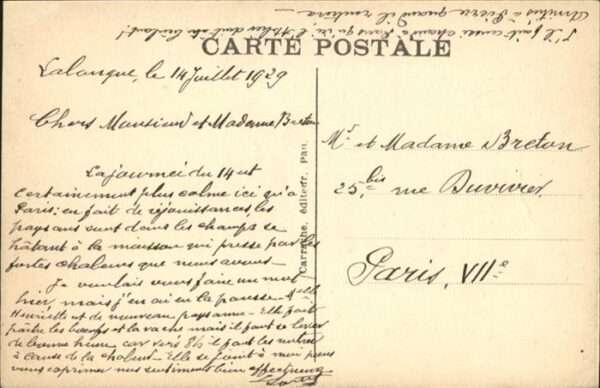 CARTE POSTALE
Lalongue, le 14 Juillet 1929
Chers Monsieur et Madame Breton
La journée du 14 est
certainement plus calme ici qu'à
Paris; en fait de réjouissances, les
paysans sont dans les champs se
hâtant à la moisson qui presse par les
fortes chaleurs que nous avons.
Je voulais vous faire un mot
hier, mais j'en ai eu la paresse. Melle
Henriette est de nouveau paysanne. Elle fait
paître les bœufs et la vache mais il faut se lever
de bonne heure car vers 8h il faut les rentrer
à cause de la chaleur. Elle se joint à moi pour
vous exprimer nos sentiments bien affectueux
S'il fait aussi chaud à Paris qu'ici l'Atelier doit être brûlant!
Amitiés à Pierre quand il rentrera
Carrache, éditeur, Pau.
Mr et Madame Breton
25 bis rue Duvivier
Paris, VIIe